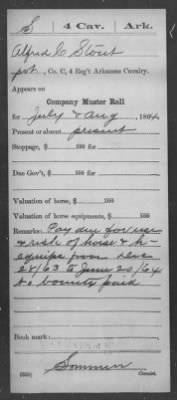 S | 4 Cav. | Ark.
Alfred C Stout
pvt, Co. C, 4 Reg't Arkansas Cavalry.
Appears on
Company Muster Roll
for July & Aug, 1864.
Present or absent present
Stoppage, $ 100 for
Due Gov't, $ 100 for
Valuation of horse, $ 100
Valuation of horse equipments, $ 100
Remarks: Pay due for use
& risk of horse & h-
equips from Dec
28/63 to June 20/64
No bounty paid
Book mark:
(358)
Copyist.